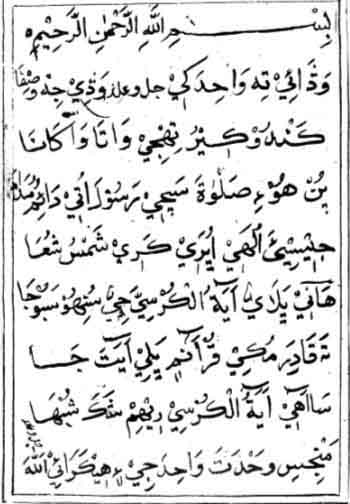 بِسْمِ اللّٰهِ الرَّحْمٰنِ الرَّحِيْمِ
وَڏَائِيْ تِه وَاحِدَ كَيْ جل وعلا وَذِيْ جِنْه وصْفَا
كَنْهُ وْ كِيْرُ تِهْجِيْ وَاتَا وَاكَانَا
بُنْ هُوْءِ صَلٰوةَ سَيْجِيْ رَسُوْلَ اُتِيْ دَائِمُ مُدَامَا
اٰلَهِيْ اُپَرِيْ كَرِيْ شَمْسُ شُعَا
هَاڻِيْ پَلَايْ اٰيَةُ الْكُرْسِيْ جِيْ سُنِهُوْ سَبُوْجَا
تَه قَادِرَ مُكِيْ قُرْاٰنَمِ پَلِيْ اٰيَتَ جَا
سَا اَهِيْ اٰيَةُ الْكُرْسِيْ رِيْهِمْ شَكَ شُبْهَا
مَنْجِسِ وَحْدَتَ وَاحِدَ جِيْ اللّٰه